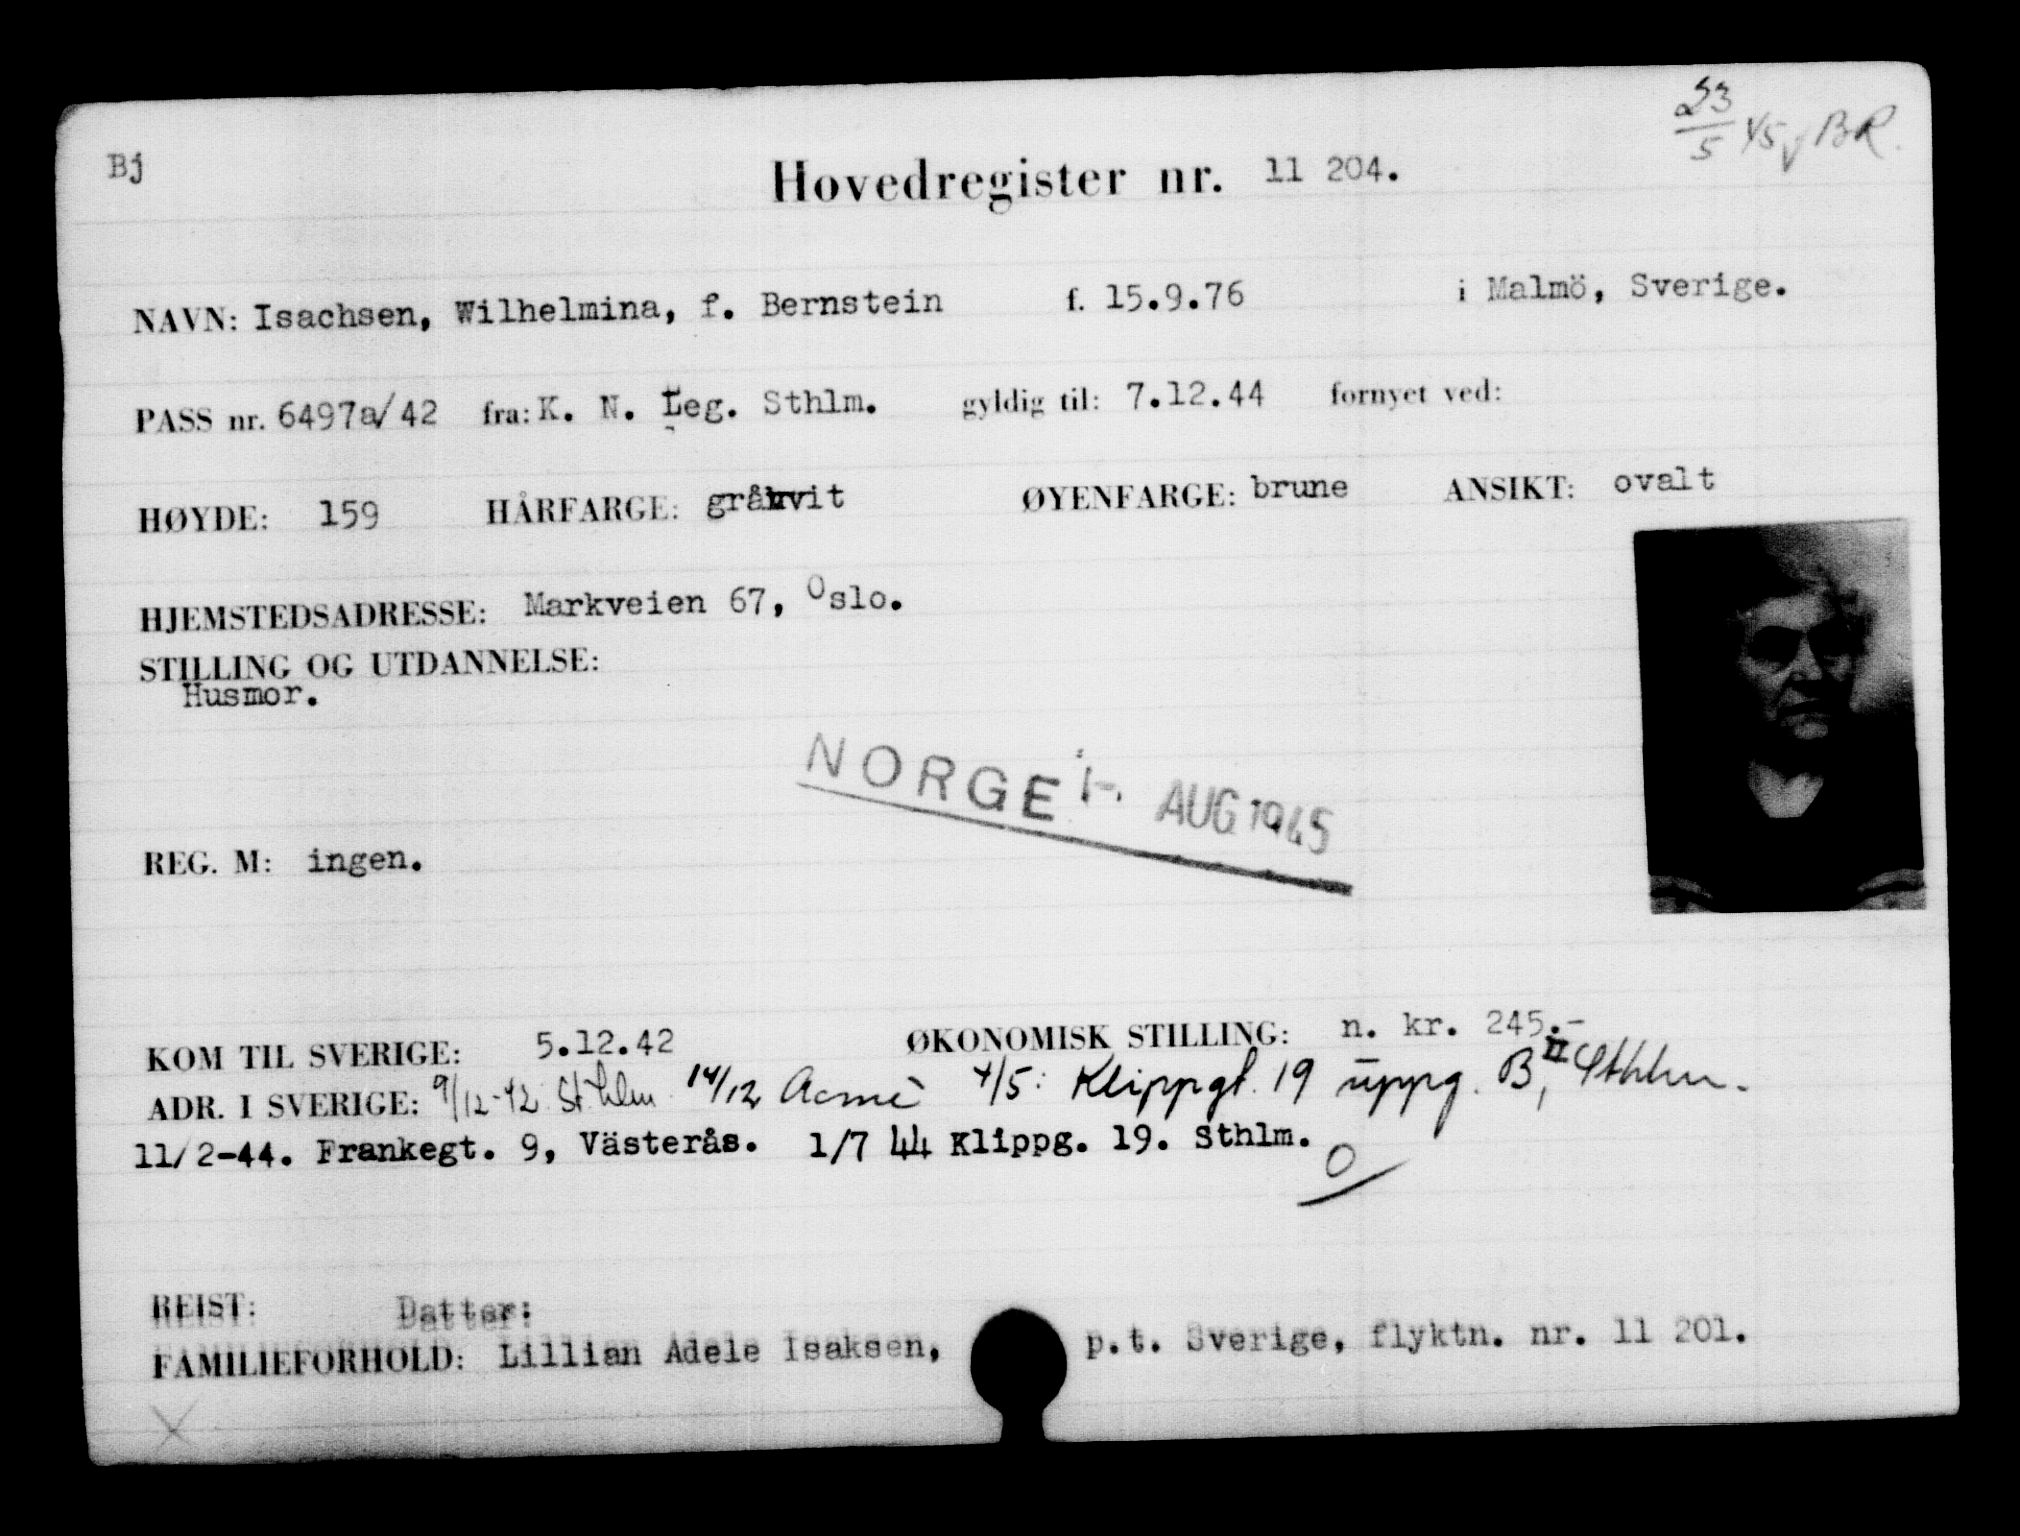 23/5 45 BR.
Bj
Hovedregister nr. 11 204.
NAVN: Isachsen, Wilhelmina, f. Bernstein f. 15.9.76 i Malmö, Sverige.
PASS nr. 6497a/42 fra: K. N. Leg. Sthlm. gyldig til: 7.12.44 fornyet ved:
HØYDE: 159 HÅRFARGE: gråhvit ØYENFARGE: brune ANSIKT: ovalt
HJEMSTEDSADRESSE: Markveien 67, Oslo.
STILLING OG UTDANNELSE:
Husmor.
NORGE 1-. AUG 1945
REG. M: ingen.
KOM TIL SVERIGE: 5.12.42 ØKONOMISK STILLING: n. kr. 245.-
ADR. I SVERIGE: 9/12-42 Sthlm 14/12 Acmé 4/5: Klippgt. 19 uppg. B, II Sthlm.
11/2-44. Frankegt. 9, Västerås. 1/7 44 Klippg. 19. Sthlm.
0
REIST: Datter:
FAMILIEFORHOLD: Lillian Adele Isaksen, p.t. Sverige, flyktn. nr. 11 201.
X